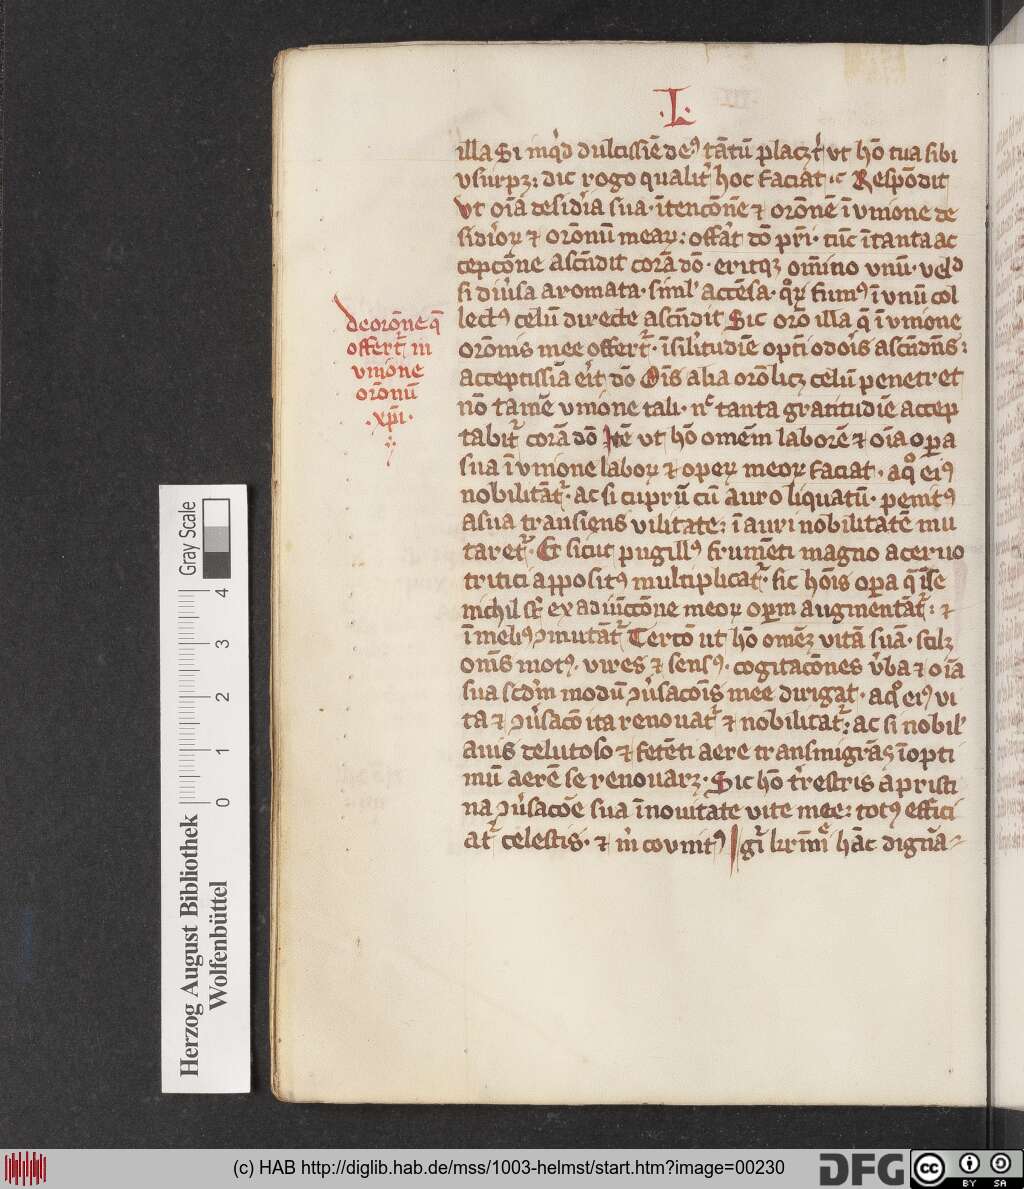 ·L·
illa Si inq̇d dulcissīe deꝰ tātū placꝫt vt hō tua sibi
vsurpꝫ: dic rogo qualit hoc faciat ·c Respōdit
Vt oīa desidia sua· ītencōnē ⁊ orōnē ī vnione de
sidioꝝ ⁊ orōnū meaꝝ: offat dō pri· tūc ī tanta ac
cepcōne ascn̄dit corā dō· eritqꝫ om̄ino vnū· veld
si diu̓sa aromata· siml̓ accēsa· qͦꝝ fumꝰ ī vnū col
lectꝰ celū directe ascn̄dit Sic orō illa q̄ ī vnione
orōnis mee offert̓· ī silitudīe opti odois ascn̄dn̄s:
acceptissīa eit dō Oīs alia orō licꝫ celū penetret
nō tamē vnione tali· nc̄ tanta gratitudīe accep
tabit̓ corā dō Itē vt hō omēm laborē ⁊ oīa opa
sua ī vnione laboꝝ ⁊ opeꝝ meoꝝ faciat· aqͦ eiꝰ
nobilitāt̓· ac si cuprū cū auro liquatū· penitꝰ
a sua transiens vilitate: ī auri nobilitatē mu
taret̓· Et sicut pugillꝰ frumēti magno aceruo
tritici appositꝰ multiplicat̓· sic hōis opa q̄ ī se
nichil st̄ ex adiūccōne meoꝝ opm augmentāt̓: ⁊
ī meliꝰ ꝯmutāt̓ Tercō ut hō omēꝫ vitā suā· scilꝫ
om̄s motꝰ· vires ⁊ sensꝰ· cogitacōnes v̓ba ⁊ oīa
sua scdm modū ꝯu̓sacoīs mee dirigat· aqͦ eiꝰ vi
ta ⁊ ꝯu̓sacō ita renouat̓ ⁊ nobilitat̓: ac si nobil̓
auis de lutoso ⁊ fetēti aere transmigrās ī opti
mū aerē se renouarꝫ· Sic hō tr̓estris a pristi
na ꝯu̓sacōe sua ī nouitate vite mee: totꝰ effici
at̓ celestis· ⁊ m̄ covnitꝰ
hāc dign̄a-
de orōne q̄
offert̓ in
vnione
orōnū
·xp̄i·
Herzog August Bibliothek
Wolfenbüttel
Gray Scale
0 1 2 3 4
(c) HAB http://diglib.hab.de/mss/1003-helmst/start.htm?image=00230
DFG
cc BY SA